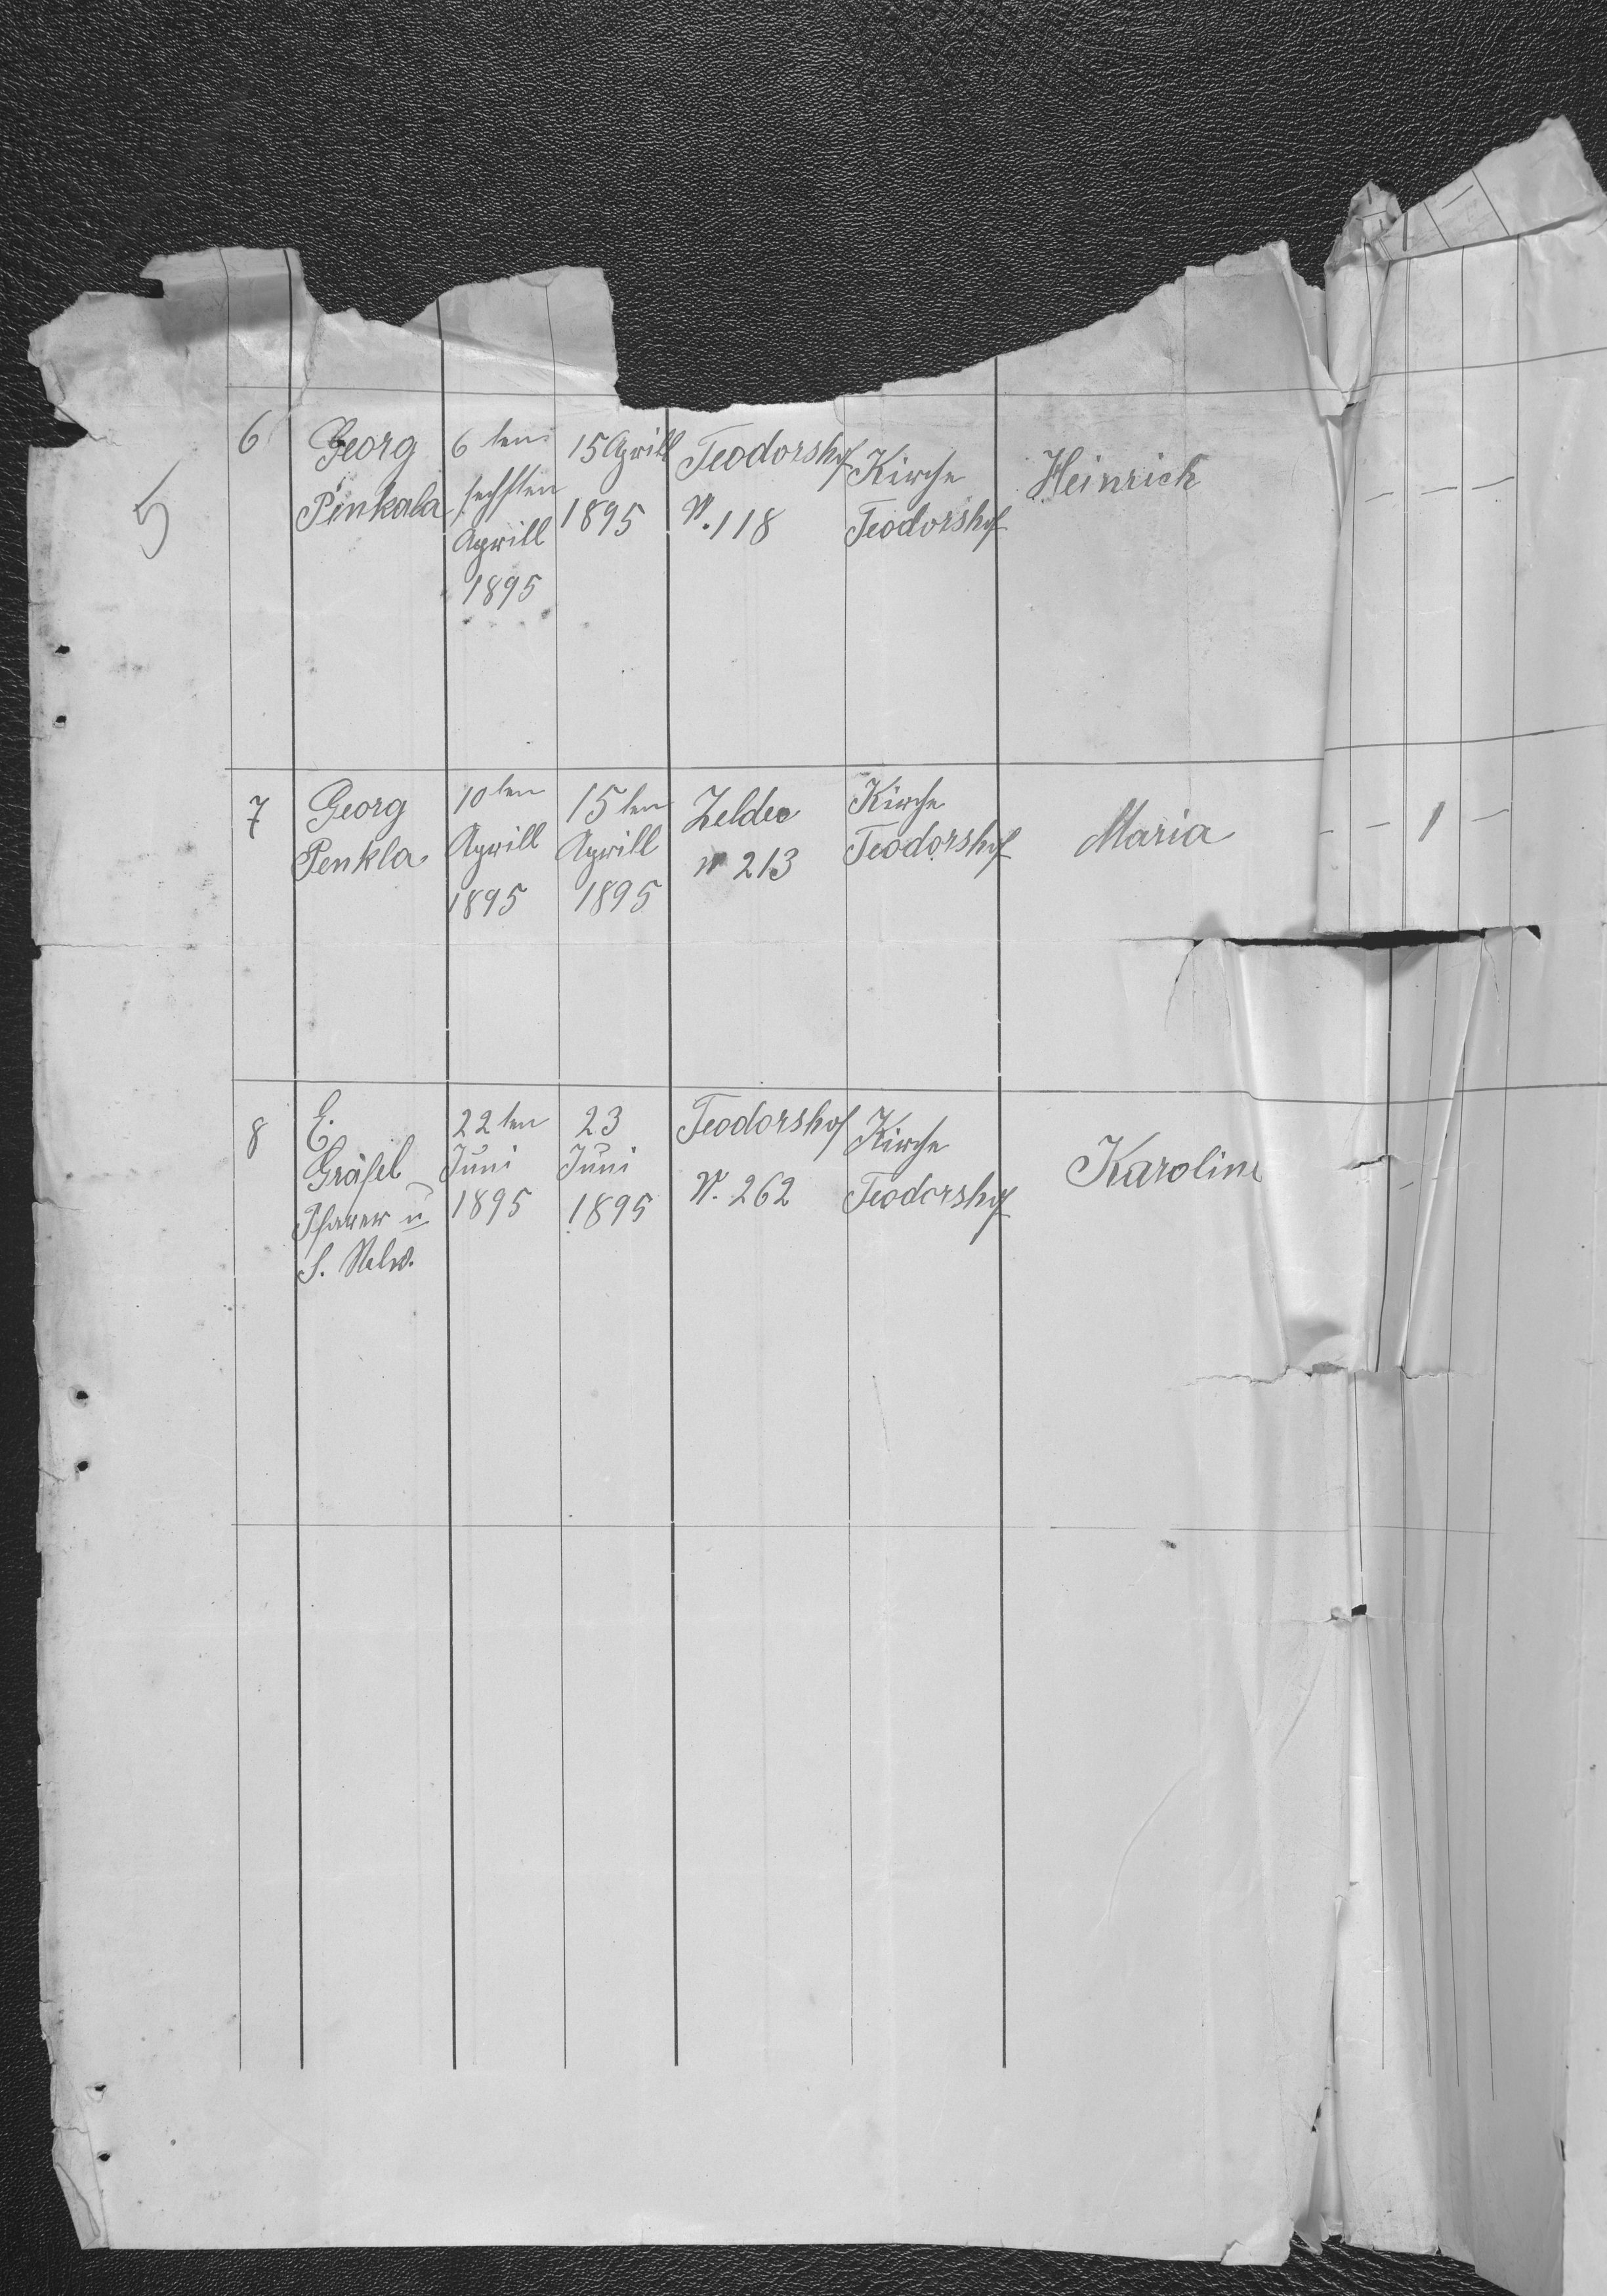 5
6
Georg
Pinkala
6 ten
sechsten
Aprill
1895
15 Aprill
1895
Teodorshof
N. 118
Kirche
Teodorshof
Heinrich
— — —
7
Georg
Penkla
10 ten
Aprill
1895
15 ten
Aprill
1895
Zeldec
N 213
Kirche
Teodorshof
Maria
— — 1 —
8
E.
Gräfel
Pfarrer u
S.
22 ten
Juni
1895
23
Juni
1895
Teodorshof
N. 262
Kirche
Teodorshof
Karoline
- -